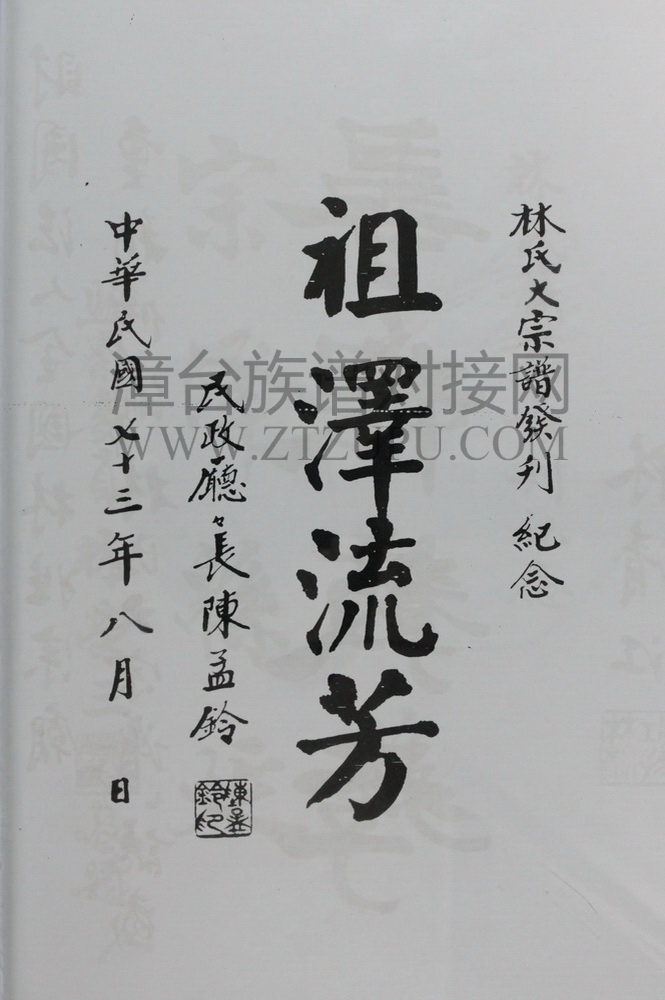 林氏大宗譜發刊紀念
祖澤流芳
民政廳々長陳孟鈴
陳孟鈴印
中華民國七十三年八月 日
漳台族谱对接网
WWW.ZTZUPU.COM